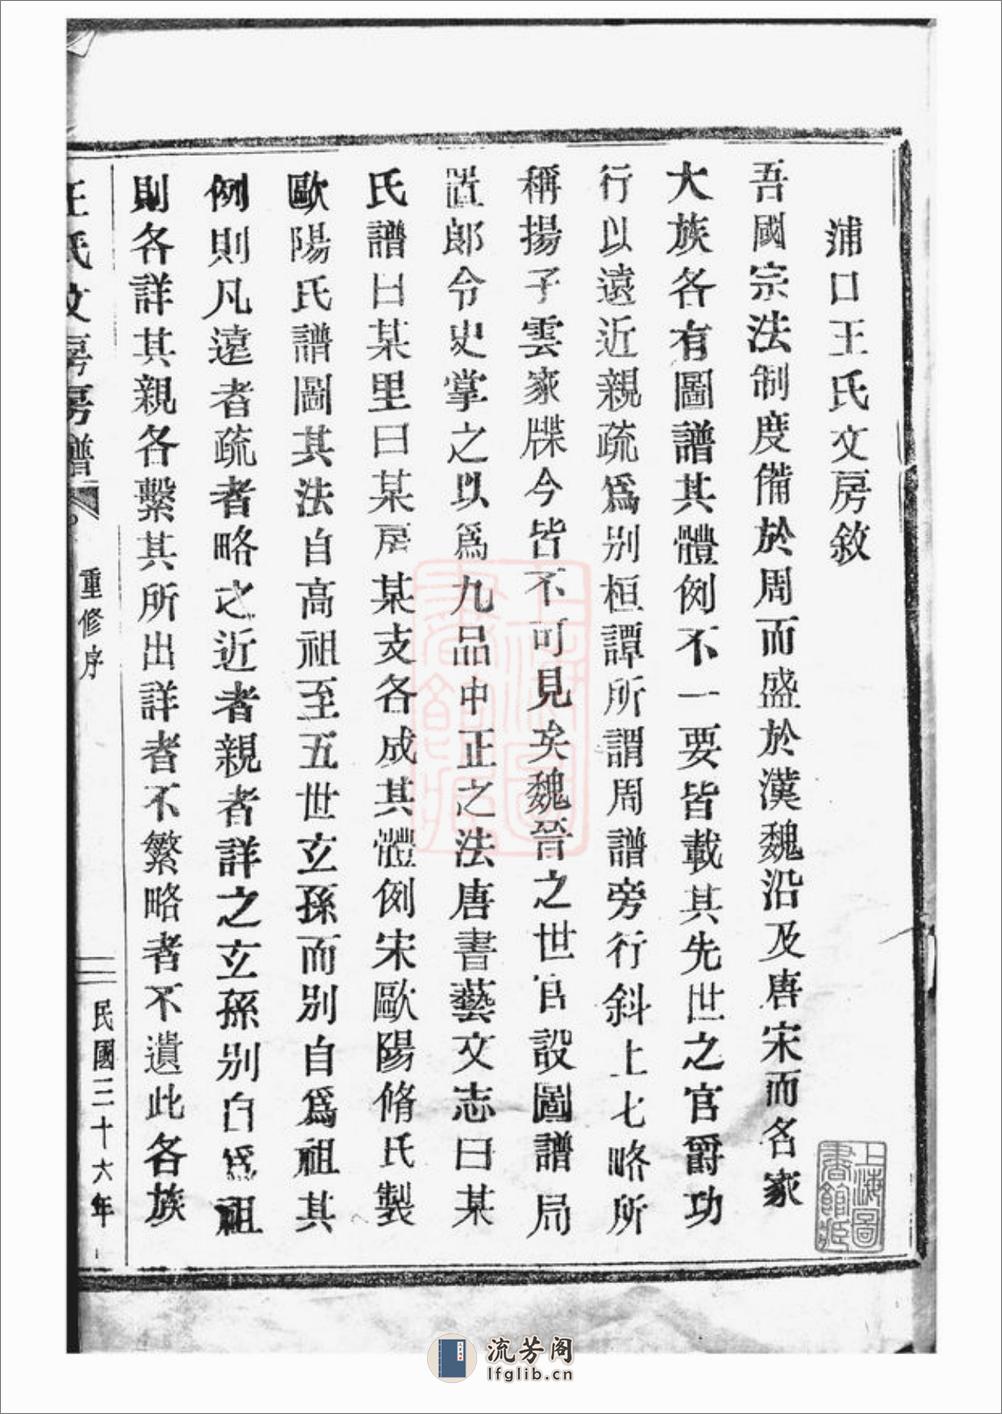 浦口王氏文房敘
吾國宗法制度備於周而盛於漢魏沿及唐宋而名家
大族各有圖譜其體例不一要皆載其先世之官爵功
行以遠近親疏爲別桓譚所謂周譜旁行斜上七略所
稱揚子雲家牒今皆不可見矣魏晉之世官設圖譜局
置郎令史掌之以爲九品中正之法唐書藝文志曰某
氏譜曰某里曰某房某支各成其體例宋歐陽脩氏製
歐陽氏譜圖其法自高祖至五世玄孫而別自爲祖其
例則凡遠者疏者略之近者親者詳之玄孫別自爲祖
則各詳其親各繫其所出詳者不繁略者不遺此各族
王氏文房房譜
重修序
民國三十六年
上海圖書館藏
上海圖書館藏
流芳阁
lfglib.cn